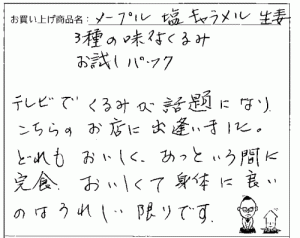 お買い上げ商品名：メープル 塩キャラメル 生姜
3種の味付くるみ
お試しパック
テレビでくるみが話題になり
こちらのお店に出逢いました。
どれもおいしく、あっという間に
完食。おいしくて身体に良い
のはうれしい限りです。